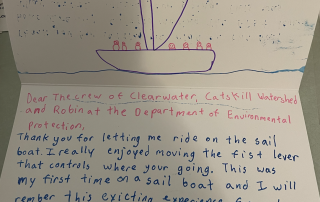 Dear The crew of Clearwater, Catskill Watershed
and Robin at the Department of Environmental
protection,
Thank you for letting me ride on the sail
boat. I really enjoyed moving the fist lever
that controls where your going. This was
my first time on a sail boat and I will
rember this exicting experience